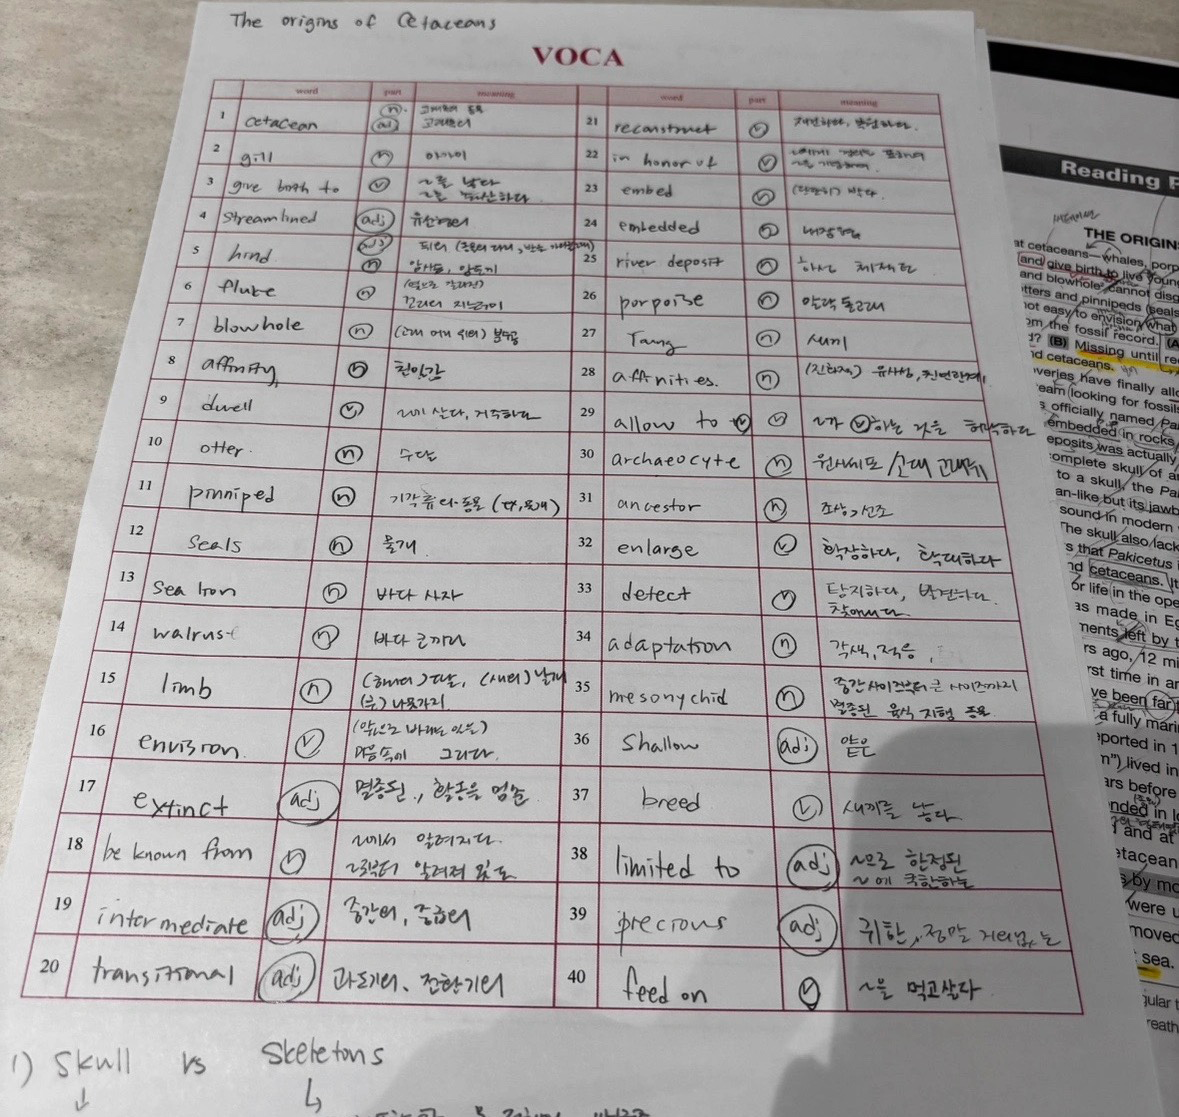 The origins of Cetaceans
VOCA
word part meaning word part meaning
1 cetacean n. adj 고래목의 동물 고래목의
2 gill n 아가미
3 give birth to v ~를 낳다 ~를 출산하다
4 streamlined adj 유선형의
5 hind adj n 뒤의
6 fluke n 꼬리의 지느러미
7 blowhole n (고래 머리 위의) 분수공
8 affinity n 친밀감
9 dwell v ~에 살다, 거주하다
10 otter n 수달
11 pinniped n 기각류의 동물
12 seals n 물개
13 sea lion n 바다 사자
14 walrus n 바다 코끼리
15 limb n (하나의) 팔다리, (새의) 날개 (큰) 나뭇가지
16 envision v 마음속에 그리다.
17 extinct adj 멸종된, 활동을 멈춘
18 be known from v ~에서 알려지다. ~로부터 알려져 있다
19 intermediate adj 중간의, 중급의
20 transitional adj 과도기의, 전환기의
21 reconstruct v 재건하다, 복원하다.
22 in honor of v
23 embed v (단단히) 박다
24 embedded n 내장된
25 river deposit n 하상 퇴적물
26 porpoise n 알락돌고래
27 Young n 새끼
28 affinities. n 유사성, 친연관계
29 allow to v v ~가 v하는 것을 허락하다
30 archaeocyte n 원시세포
31 ancestor n 조상, 선조
32 enlarge v 확장하다, 확대하다
33 detect v 탐지하다, 발견하다. 찾아내다.
34 adaptation n 각색, 적응,
35 mesonychid n 중간사이즈부터 큰 사이즈까지 멸종된 육식 지행 동물
36 shallow adj 얕은
37 breed v 새끼를 낳다
38 limited to adj ~으로 한정된 ~에 국한하는
39 precious adj 귀한,
40 feed on v ~을 먹고살다
1) Skull vs Skeletons
Reading
THE ORIGIN
at cetaceans—whales, porp
and give birth to live young
and blowhole cannot disg
otters and pinnipeds (seals
not easy to envision what
om the fossil record. (A
d? (B) Missing until re
nd cetaceans.
overies have finally allo
eam (looking for fossils
s officially named Pa
embedded in rocks
eposits was actually
omplete skull of a
to a skull, the Pa
an-like but its jawb
sound in modern
The skull also lack
s that Pakicetus
nd cetaceans. It
or life in the ope
as made in Eg
ments left by t
rs ago, 12 mi
rst time in an
ve been far
a fully mari
eported in 1
m") lived in
ars before
nded in l
and at
etacean
s by mo
were u
moved
sea.
gular t
reath